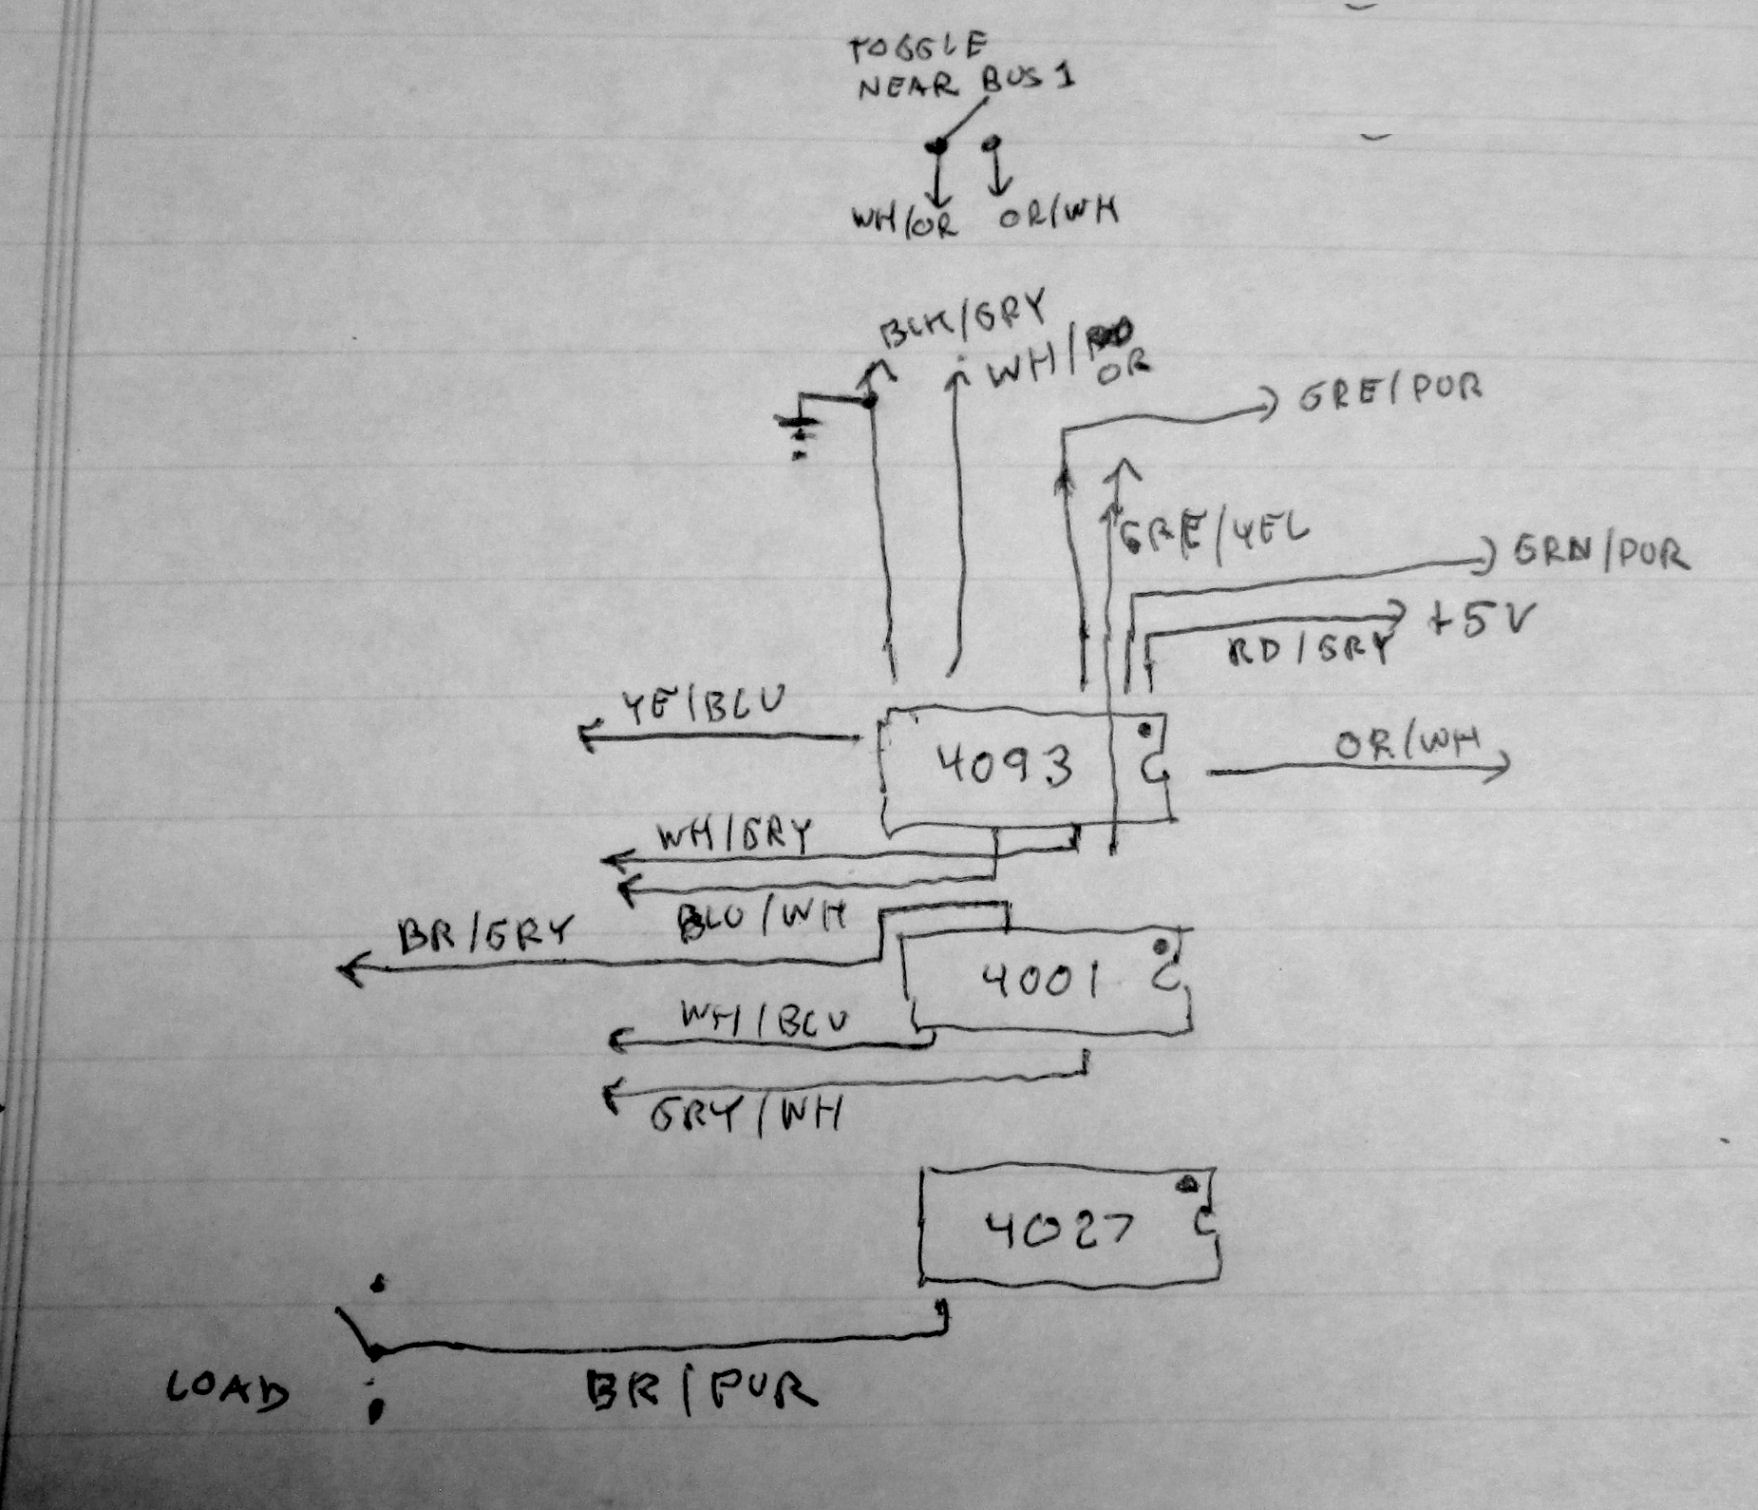 TOGGLE
NEAR BUS 1
WH/OR OR/WH
BLK/GRY
WH/
OR
GRE/PUR
GRE/YEL
GRN/PUR
+5V
RD/GRY
YE/BLU
4093
OR/WH
WH/GRY
BLU/WH
BR/GRY
4001
WH/BLU
GRY/WH
4027
LOAD
BR/PUR